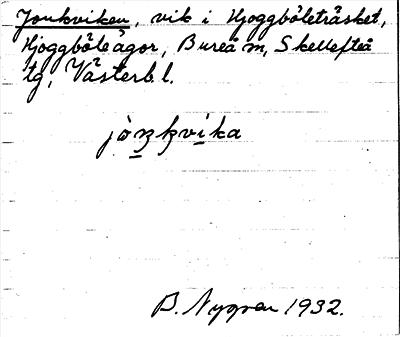 Jonkviken, vik i Hjoggböleträsket,
Hjoggböle ägor, Bureå m, Skellefteå
tg, Västerb. l.
jònkvika
B. Nygren 1932.